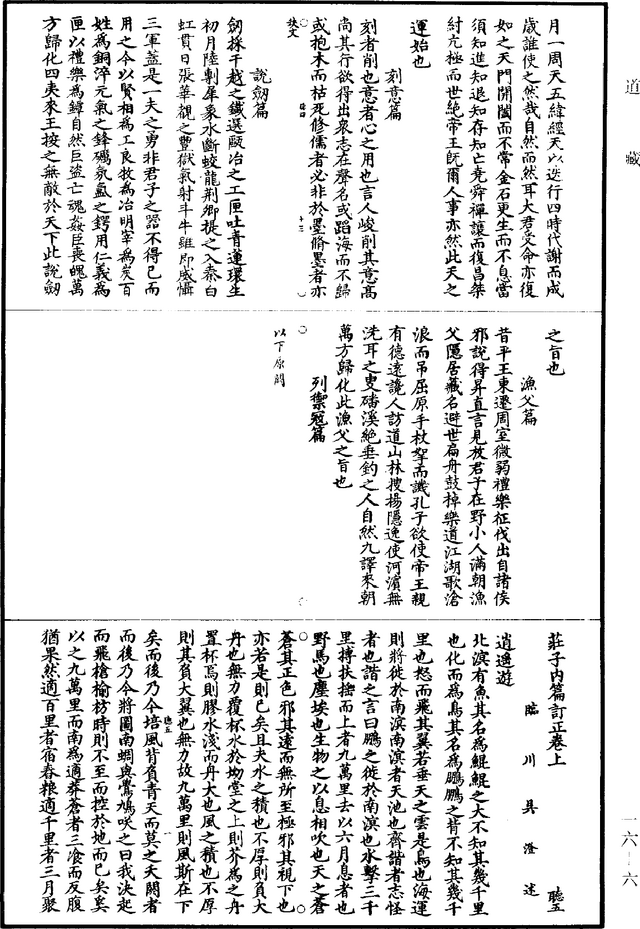 道藏
月一周天五緯經天以迭行四時代謝而成
歲誰使之然哉自然而然耳大君受命亦復
如之天門開闔而不常金石更生而不息當
須知進知退知存知亡堯舜禪讓而復昌桀
紂亢極而世絕帝王既爾人事亦然此天之
運始也
刻意篇
刻者削也意者心之用也言人峻削其意高
尚其行欲得出衆志在聲名或蹈海而不歸
或抱木而枯死修儒者必非於墨脩墨者亦
說劒篇
劒採干越之鐵選歐冶之工匣吐青蓮環生
初月陸剸犀象水斷蛟龍荆卿提之入秦白
虹貫日張華觀之豐獄氣射斗牛雖即威懾
三軍蓋是一夫之勇非君子之器不得已而
用之今以賢相為工良牧為冶明宰為炭百
姓為銅淬元氣之鋒礪氛氳之鍔用仁義為
匣以禮樂為鐔自然巨盜亡魂姦臣喪魄萬
方歸化四夷來王按之無敵於天下此說劒
之旨也
漁父篇
昔平王東遷周室微弱禮樂征伐出自諸侯
邪說得昇直言見放君子在野小人滿朝漁
父隱居藏名避世扁舟鼓棹樂道江湖歌滄
浪而吊屈原手杖挐而譏孔子欲使帝王親
有德遠讒人訪道山林搜楊隱逸使河濱無
洗耳之叟磻溪絕垂釣之人自然九譯來朝
萬方歸化此漁父之旨也
列禦寇篇
以下原闕
莊子内篇訂正卷上
聽五
臨川吳澄述
逍遙遊
北溟有魚其名為鯤鯤之大不知其幾千里
也化而為鳥其名為鵬鵬之背不知其幾千
里也怒而飛其翼若垂天之雲是鳥也海運
則將徙於南溟南溟者天池也齊諧者志怪
者也諧之言曰鵬之徙於南溟也水擊三千
里摶扶搖而上者九萬里去以六月息者也
野馬也塵埃也生物之以息相吹也天之蒼
蒼其正色邪其遠而無所至極邪其視下也
亦若是則已矣且夫水之積也不厚則負大
舟也無力覆杯水於坳堂之上則芥為之舟
置杯焉則膠水淺而舟大也風之積也不厚
則其負大翼也無力故九萬里則風斯在下
矣而後乃今培風背負青天而莫之夭閼者
而後乃今將圖南蜩與鷽鳩咲之曰我決起
而飛搶榆枋時則不至而控於地而已矣奚
以之九萬里而南為適莽蒼者三飡而反腹
猶果然適百里者宿舂粮適千里者三月聚
一六－六